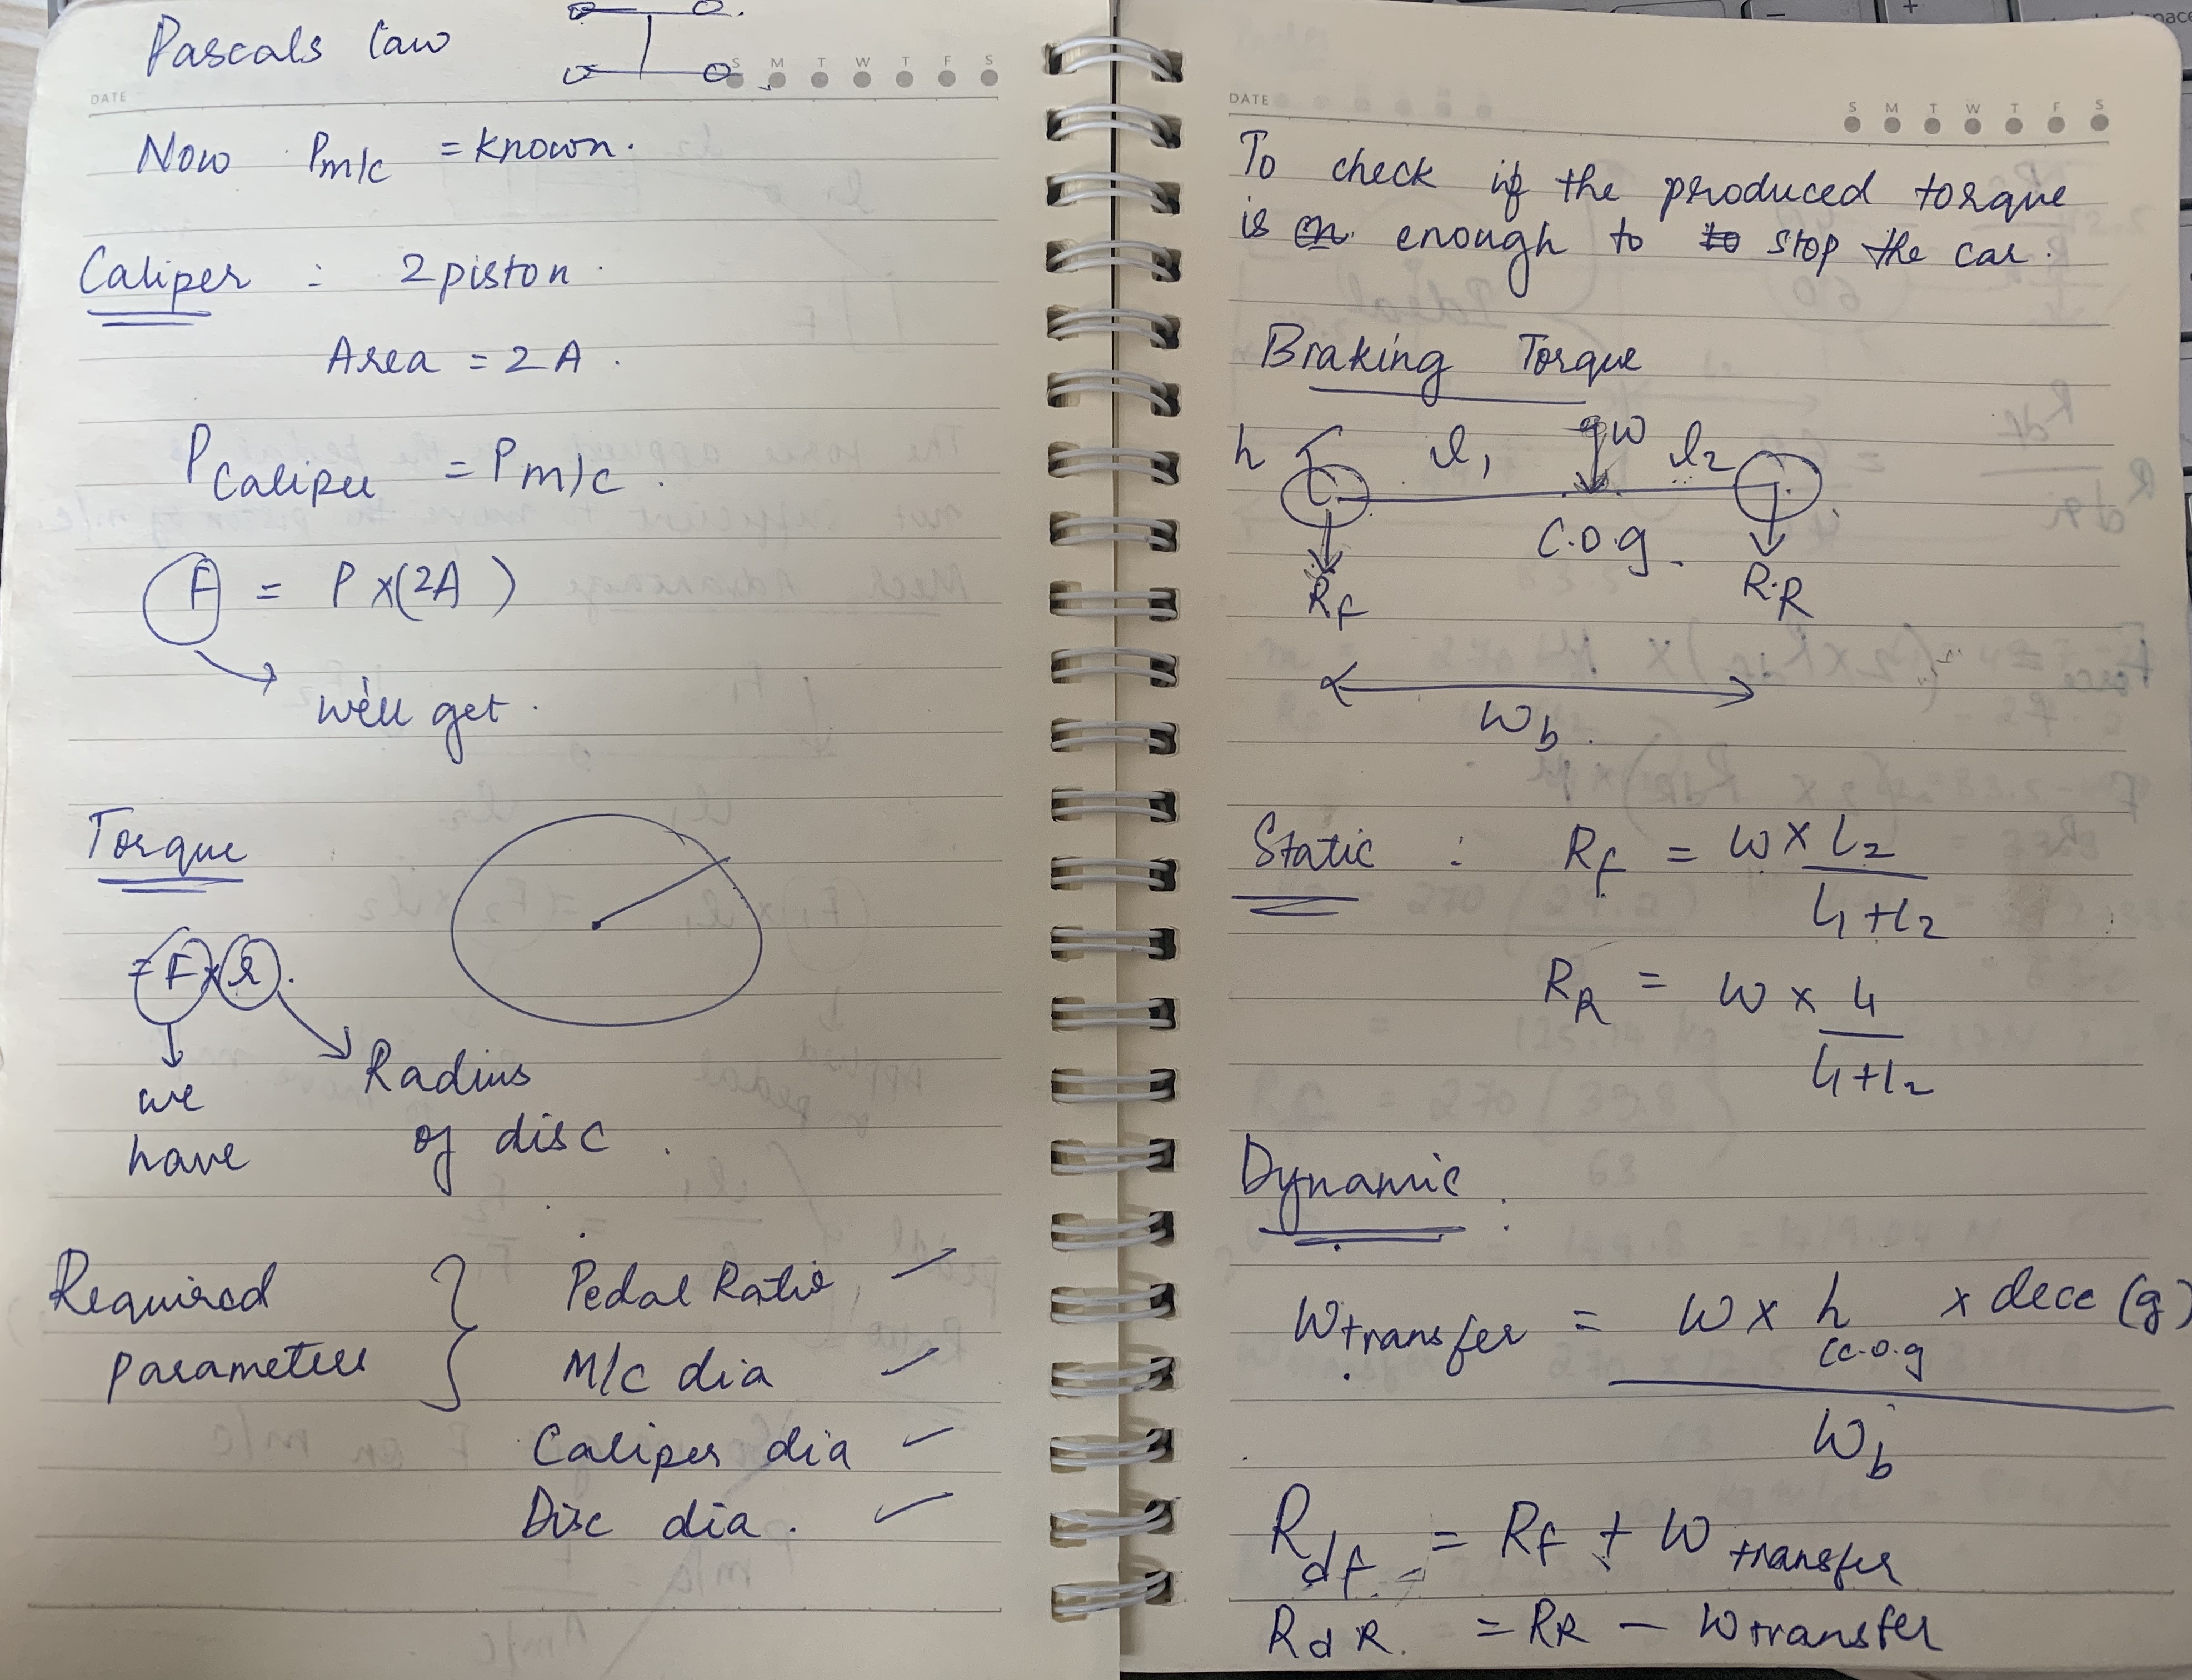 Pascals law
S M T W T F S
DATE
Now Pm/c = known.
Caliper : 2 piston.
Area = 2A.
Pcaliper = Pm/c.
F = P x (2A)
we'll get.
Torque
= F x r.
we have
Radius of disc.
Required parameters } Pedal Ratio ✓
M/c dia ✓
Caliper dia ✓
Disc dia. ✓
DATE
S M T W T F S
To check if the produced torque
is enough to stop the car.
Braking Torque
h l1 w l2
C.O.g.
Rf R.R
Wb.
Static : Rf = W x l2 / l1 + l2
RR = W x l1 / l1 + l2
Dynamic :
Wtransfer = W x h (c.o.g x dece (g) / Wb
Rdf = Rf + Wtransfer
RdR. = RR – Wtransfer